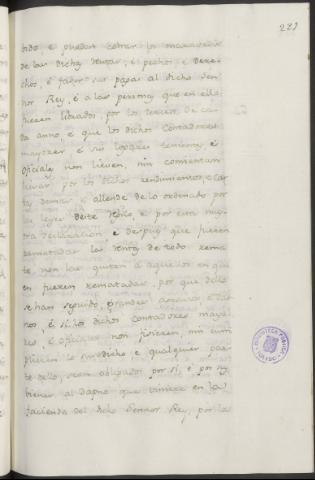 221
bido e puedan cobrar los maravedis
de las dichas rentas, é pechos e dere-
chos, é fagan sus pagas al dicho Sen-
nor Rey, é a las personas que en ello
fueren librados, por los tercios de ca-
da anno e que los dichos Contadores
mayores é sus logares tenientes, é
oficiales non lieven, nin consientan
levar por los dichos rendimientos, e car
tas demas é allende de lo ordenado por
las leyes deste Regno, e por esta nues-
tra declaracion é despues que fueren
rematadas las rentas de todo rema-
te non las quiten á aquellos en quien
fueren rematadas, por que dello
se han seguido grandes annos
é si los dichos contadores mayo-
res, é oficiales non ficieren, nin cum
plieren lo susodicho e qualquier par-
te dello, sean obligados por sí, é por sus
bienes al dapno que viniere en la
facienda del dicho Sennor Rey, por la
BIBLIOTECA PUBLICA
TOLEDO